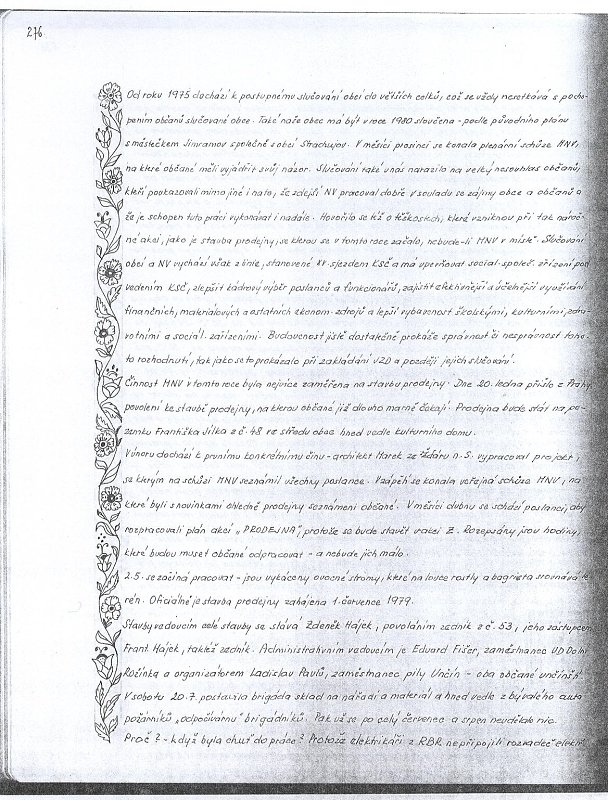 276
Od roku 1975 dochází k postupnému slučování obcí do větších celků, což se vždy nesetkává s pocho-
pením občanů slučované obce. Také naše obec má být v roce 1980 sloučena - podle původního plánu
s městečkem Jimramov společně s obcí Strachujov. V měsíci prosinci se konala plenární schůze MNV,
na které občané měli vyjádřit svůj názor. Slučování také u nás narazilo na velký nesouhlas občanů,
kteří poukazovali mimo jiné i na to, že zdejší NV pracoval dobře v souladu se zájmy obce a občanů a
že je schopen tuto práci vykonávat i nadále. Hovořilo se též o těžkostech, které vzniknou při tak nároč-
né akci, jako je stavba prodejny, se kterou se v tomto roce začalo, nebude-li MNV v místě. Slučování
obcí a NV vychází však z linie, stanovené XV. sjezdem KSČ a má upevňovat social. společ. zřízení pod
vedením KSČ, zlepšit kádrový výběr poslanců a funkcionářů, zajistit efektivnější a účelnější využívání
finančních, materiálových a ostatních ekonom. zdrojů a lepší vybavenost školskými, kulturními, zdra-
votními a sociál. zařízeními. Budoucnost jistě dostatečně prokáže správnost či nesprávnost toho-
to rozhodnutí, tak jako se to prokázalo při zakládání JZD a později jejich slučování.
Činnost MNV v tomto roce byla nejvíce zaměřena na stavbu prodejny. Dne 20. ledna přišlo z Prahy
povolení ke stavbě prodejny, na kterou občané již dlouho marně čekají. Prodejna bude stát na po-
zemku Františka Jílka z č. 48 ve středu obce hned vedle kulturního domu.
V únoru dochází k prvnímu konkrétnímu činu - architekt Marek ze Žďáru n. S. vypracoval projekt,
se kterým na schůzi MNV seznámil všechny poslance. Vzápětí se konala veřejná schůze MNV, na
které byli s novinkami ohledně prodejny seznámeni občané. V měsíci dubnu se schází poslanci, aby
rozpracovali plán akcí „PRODEJNA", protože se bude stavět v akci Z. Rozepsány jsou hodiny,
které budou muset občané odpracovat - a nebude jich málo.
2.5. se začíná pracovat - jsou vykáceny ovocné stromy, které na louce rostly a bagrista srovnává te-
rén. Oficiálně je stavba prodejny zahájena 1. července 1979.
Stavbyvedoucím celé stavby se stává Zdeněk Hájek, povoláním zedník z č. 53, jeho zástupcem
Frant. Hájek, taktéž zedník. Administrativním vedoucím je Eduard Fišer, zaměstnanec UD Dolní
Rožínka a organizátorem Ladislav Pavlů, zaměstnanec pily Unčín - oba občané unčínští.
V sobotu 20.7. postavila brigáda sklad na nářadí a materiál a hned vedle z bývalého auta
požárníků „odpočívárnu" brigádníků. Pak už se po celý červenec a srpen neudělalo nic.
Proč? - když byla chuť do práce? Protože elektrikáři z RBR nepřipojili rozvaděč elektř.